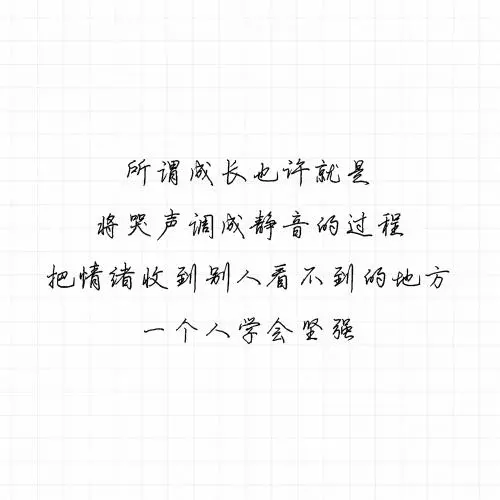 所谓成长也许就是
将哭声调成静音的过程
把情绪收到别人看不到的地方
一个人学会坚强